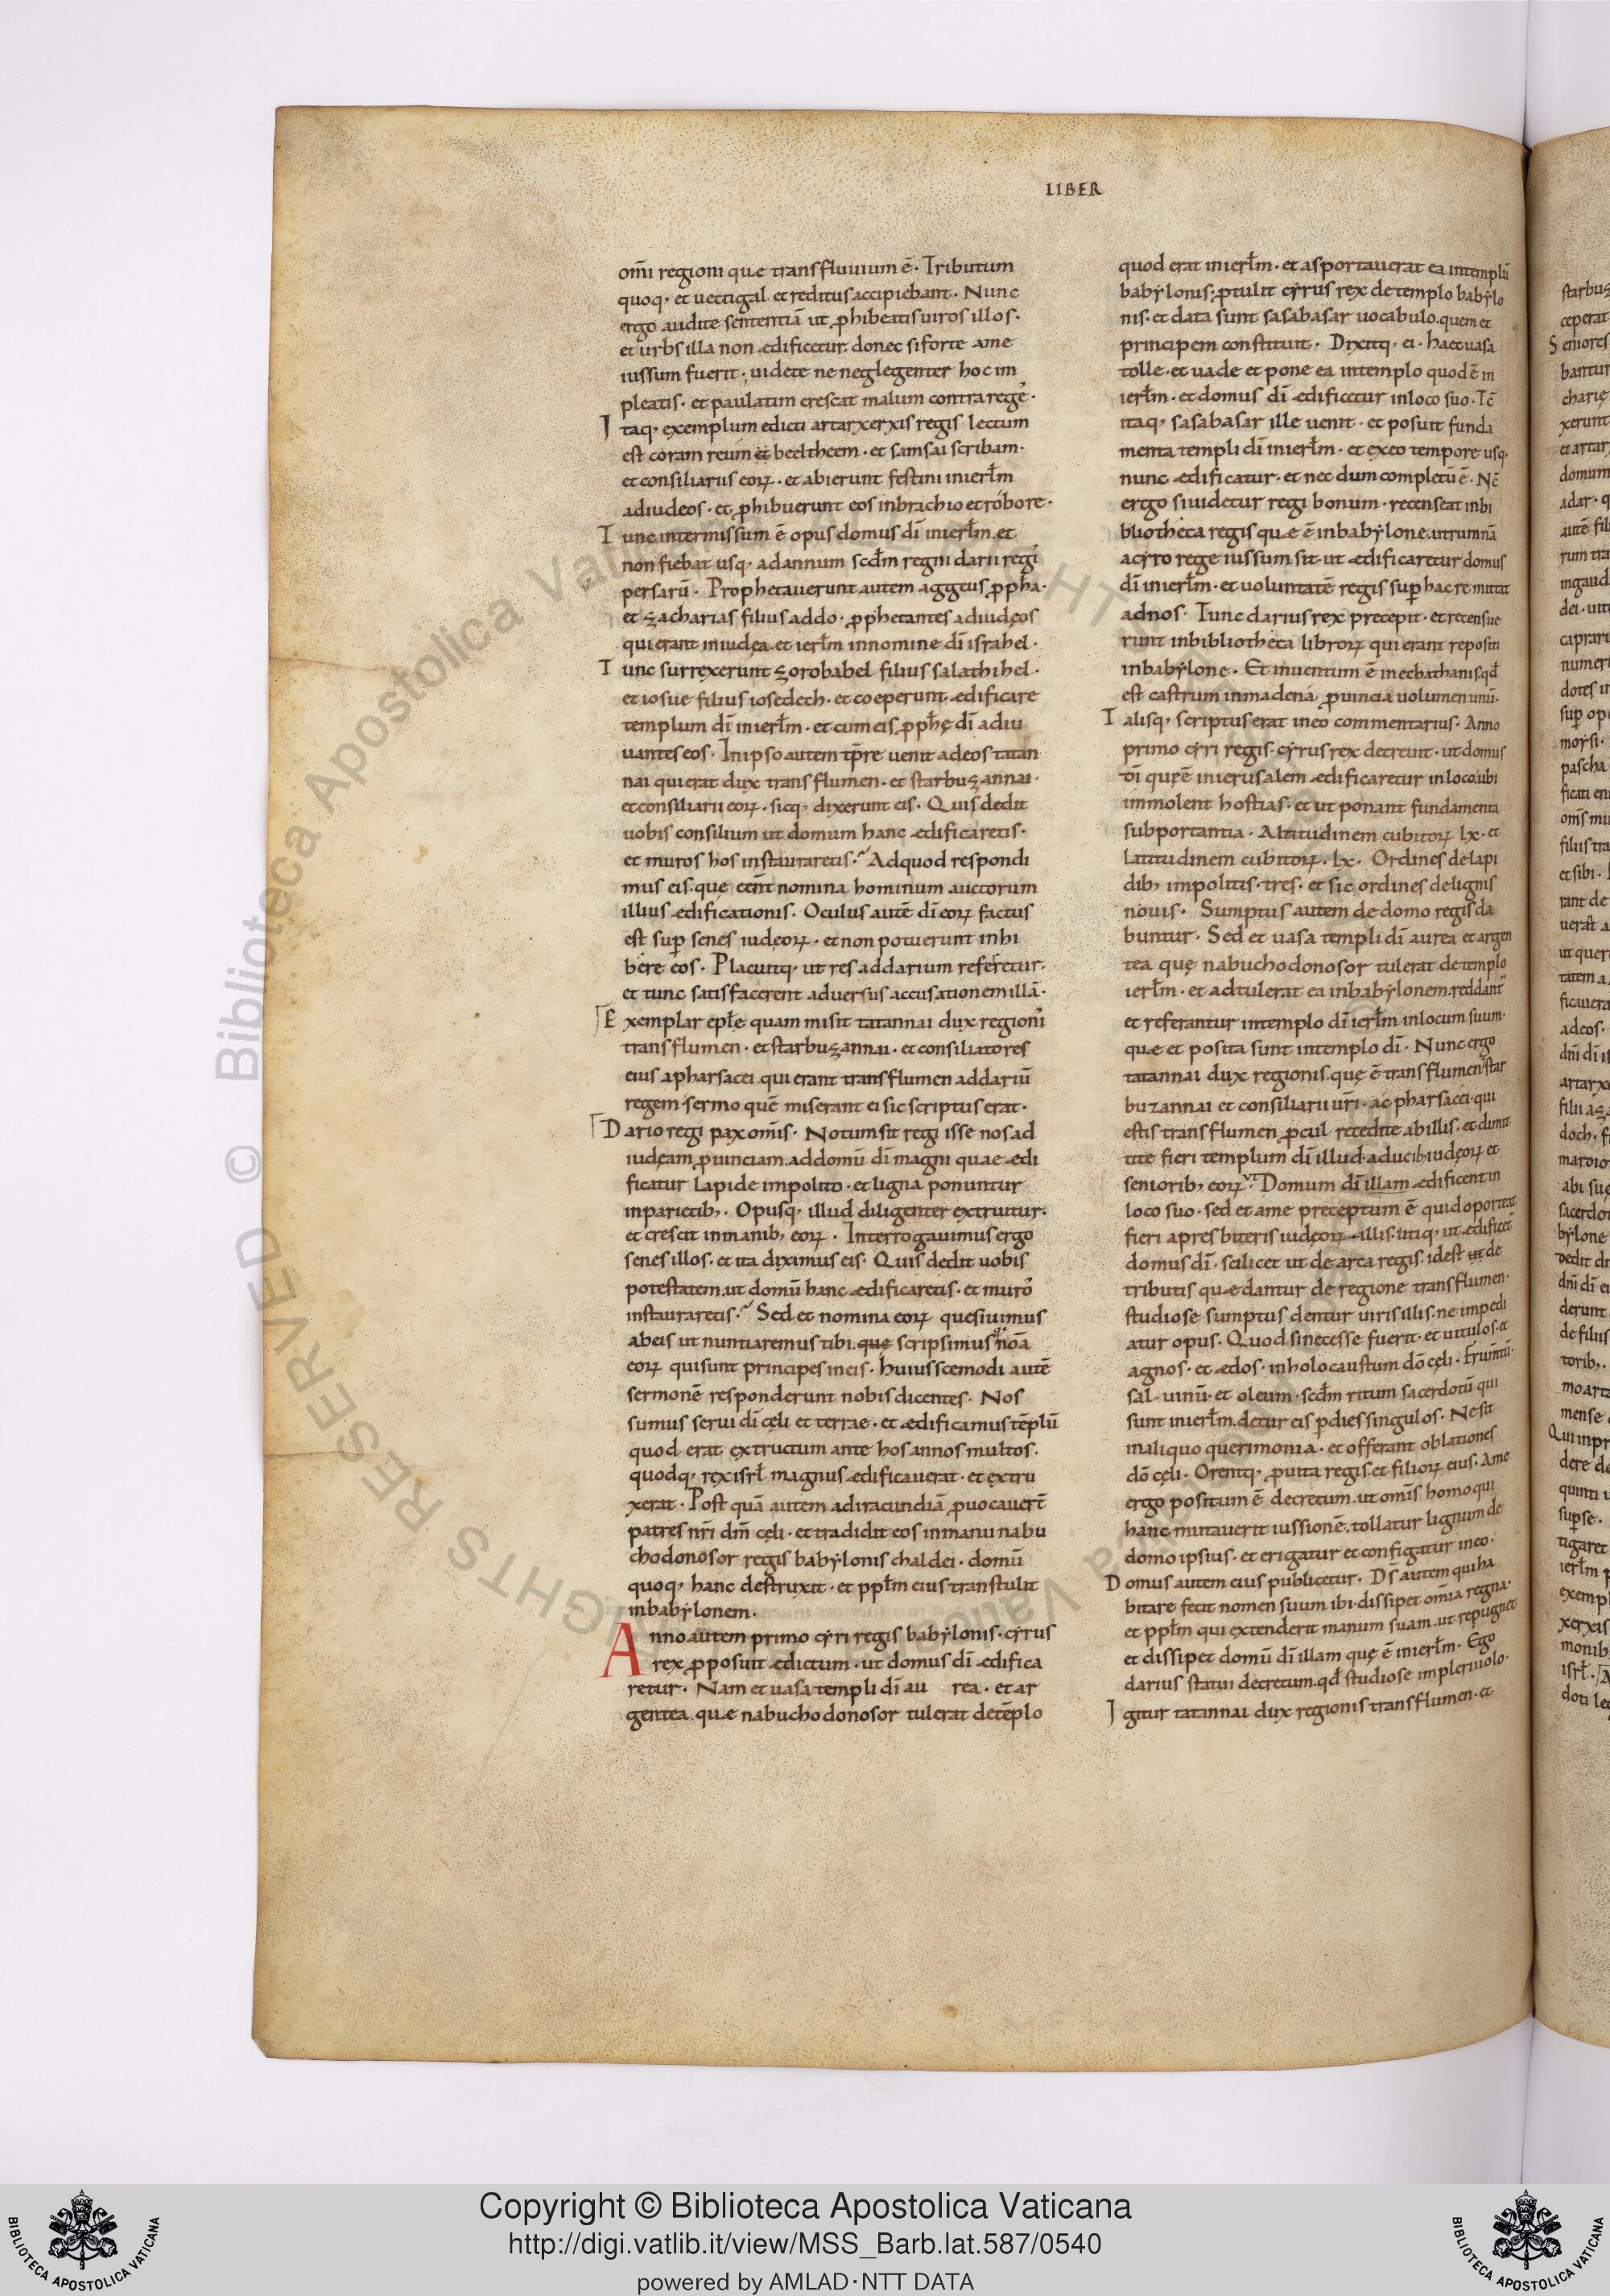 LIBER
om̄i regioni quæ trans fluuium ē · Tributum
quoq; et uectigal et reditus accipiebant · Nunc
ergo audite sententiā ut ꝓhibeatis uiros illos ·
et urbs illa non ædificetur donec si forte a me
iussum fuerit · uidete ne neglegenter hoc im
pleatis · et paulatim crescat malum contra regē ·
Itaq; exemplum edicti artarxerxis regis lectum
est coram reum et beeltheem · et samsai scribam ·
et consiliariis eoꝝ · et abierunt festini in ierłm
ad iudeos · et ꝓhibuerunt eos in brachio et robore ·
Tunc intermissum ē opus domus dī in ierłm · et
non fiebat usq; ad annum scdm̄ regni darii regı̄
persarū · Prophetauerunt autem aggeus ꝓpħa ·
et zacharias filius addo · ꝓphetantes ad iudęos
qui erant in iudęa et ierłm in nomine dī israhel ·
Tunc surrexerunt zorobabel filius salathihel ·
et iosue filius iosedech · et coeperunt ædificare
templum dī in ierłm · et cum eis ꝓpħę dī adiu
uantes eos · In ipso autem tp̄re uenit ad eos tatan
nai qui erat dux trans flumen · et starbuzannai ·
et consiliarii eoꝝ · sicq; dixerunt eis · Quis dedit
uobis consilium ut domum hanc ædificaretis ·
et muros hos instauraretis · Ad quod respondi
mus eis quę eēnt nomina hominum auctorum
illius ædificationis · Oculus autē dī eoꝝ factus
est sup̄ senes iudęoꝝ · et non potuerunt inhi
bere eos · Placuitq; ut res ad darium referetur ·
et tunc satisfacerent aduersus accusationem illā ·
Exemplar epłe quam misit tatannai dux regionı̄
trans flumen · et starbuzannai · et consiliatores
eius apharsacei qui erant trans flumen ad dariū
regem · sermo quē miserant ei sic scriptus erat ·
Dario regi pax om̄is · Notum sit regi isse nos ad
iudęam ꝓuinciam ad domū dī magni quae ædi
ficatur lapide impolito · et ligna ponuntur
in parietib; · Opusq; illud diligenter extruitur ·
et crescit in manib; eoꝝ · Interrogauimus ergo
senes illos · et ita diximus eis · Quis dedit uobis
potestatem ut domū hanc ædificaretis · et muro᷒
instauraretis · Sed et nomina eoꝝ quesiuimus
ab eis ut nuntiaremus tibi · quę scripsimus noā
eoꝝ qui sunt principes in eis · huiuscemodi autē
sermonē responderunt nobis dicentes · Nos
sumus serui dī cęli et terrae · et ædificamus tēplū
quod erat extructum ante hos annos multos ·
quodq; rex isrł magnus ædificauerat · et extru
xerat · Post quā autem ad iracundiā ꝓuocauerт̄
patres nr̄i dm̄ cęli · et tradidit eos in manu nabu
chodonosor regis babylonis chaldei · domū
quoq; hanc destruxit · et ppłm eius transtulit
in babylonem ·
Anno autem primo cyri regis babylonis · cyrus
rex ꝓposuit ædictum · ut domus dī ædifica
retur · Nam et uasa templi dī au rea · et ar
gentea quæ nabuchodonosor tulerat de tēplo
quod erat in ierłm · et asportauerat ea in templū
babylonis · ꝓtulit cyrus rex de templo babylo
nis · et data sunt sasabasar uocabulo quem et
principem constituit · Dixitq; ei · haec uasa
tolle · et uade et pone ea in templo quod ē in
ierłm · et domus dī ædificetur in loco suo · Tc̄
itaq; sasabasar ille uenit · et posuit funda
menta templi dī in ierłm · et ex eo tempore usq;
nunc ædificatur · et nec dum completū ē · Nc̄
ergo si uidetur regi bonum · recenseat in bi
bliotheca regis quæ ē in babylone utrumnā
a cyro rege iussum sit ut ædificaretur domus
dī in ierłm · et uoluntatē regis sup̄ hac re mittat
ad nos · Tunc darius rex precepit · et recensue
runt in bibliotheca libroꝝ qui erant repositi
in babylone · Et inuentum ē in ecbathanis qđ
est castrum in madena ꝓuincia uolumen unū ·
Talisq; scriptus erat in eo commentarius · Anno
primo cyri regis · cyrus rex decreuit · ut domus
dī quę ē in ierusalem ædificaretur in loco ubi
immolent hostias · et ut ponant fundamenta
subportantia · Altitudinem cubitoꝝ lx · et
latitudinem cubitoꝝ · lx · Ordines de lapi
dib; impolitis · tres · et sic ordines de lignis
nouis · Sumptus autem de domo regis da
buntur · Sed et uasa templi dī aurea et argen
tea quę nabuchodonosor tulerat de templo
ierłm · et adtulerat ea in babylonem reddant̄
et referantur in templo dī ierłm in locum suum ·
quæ et posita sunt in templo dī · Nunc ergo
tatannai dux regionis quę ē trans flumen star
buzannai et consiliarii ur̄i · ac pharsacei · qui
estis trans flumen ꝓcul recedite ab illis · et dimit
tite fieri templum dī illud a ducib; iudęoꝝ et
seniorib; eoꝝ · ut Domum dī illam ædificent in
loco suo · sed et a me preceptum ē quid oporteat
fieri a presbiteris iudęoꝝ illis utiq; ut ædificet̄
domus dī · scilicet ut de arca regis · id est ut de
tributis quæ dantur de regione trans flumen ·
studiose sumptus dentur uiris illis · ne impedi
atur opus · Quod si necesse fuerit · et uitulos · et
agnos · et ædos · in holocaustum dō cęli · frumtū ·
sal · uinū · et oleum · scdm̄ ritum sacerdotū qui
sunt in ierłm detur eis p dies singulos · Ne sit
in aliquo querimonia · et offerant oblationes
dō cęli · Orentq; ꝓ uita regis · et filioꝝ eius · A me
ergo positum ē decretum · ut om̄is homo qui
hanc mutauerit iussionē · tollatur lignum de
domo ipsius · et erigatur et configatur in eo ·
Domus autem eius publicetur · Ds̄ autem qui ha
bitare fecit nomen suum ibi · dissipet om̄ia regna ·
et ppłm qui extenderit manum suam · ut repugnet
et dissipet domū dī illam quę ē in ierłm · Ego
darius statui decretum qđ studiose impleri uolo ·
Igitur tatannai dux regionis trans flumen · et
Copyright © Biblioteca Apostolica Vaticana
http://digi.vatlib.it/view/MSS_Barb.lat.587/0540
powered by AMLAD·NTT DATA